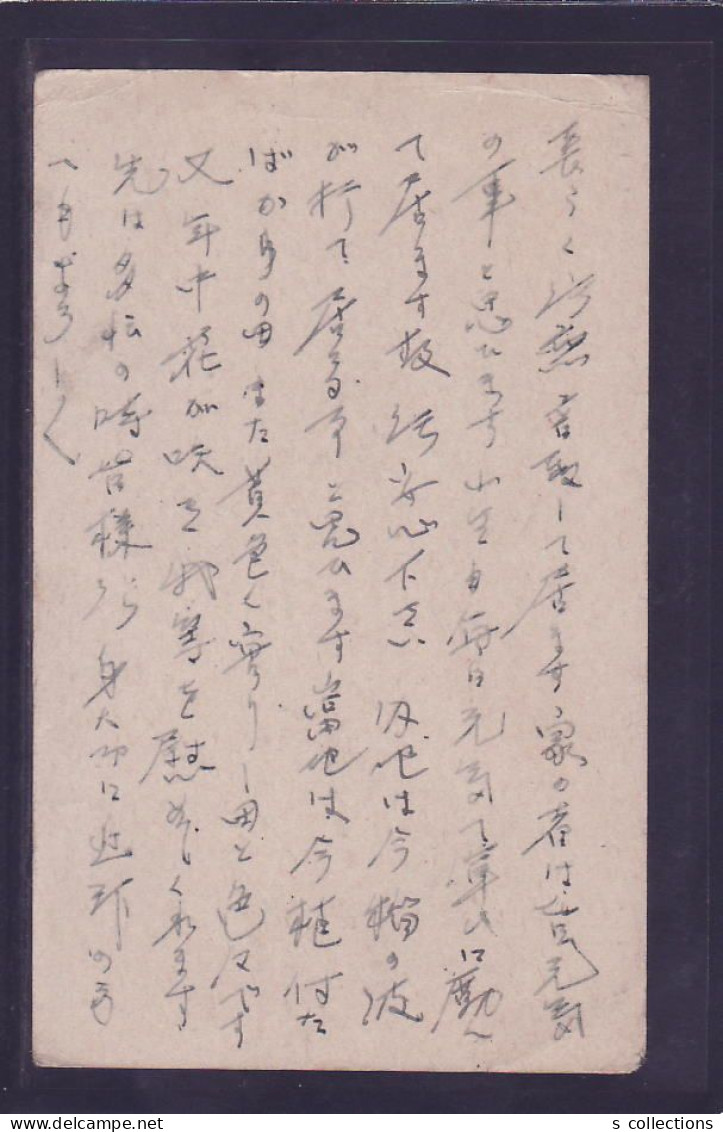 長らく御無音致して居ます 家の者は皆元気
の事と思ひます 小生も毎日元気で軍ムに励ん
で居ます故 御安心下さい 内地は今稲の波
が打て居る事と思ひます 当地は今植付た
ばかりの田 また黄色く実のりし田と色々です
又年中花が咲き我等を慰めてくれます
先は多忙の時皆様 身大切に 近所の方
へもよろしく
s collections